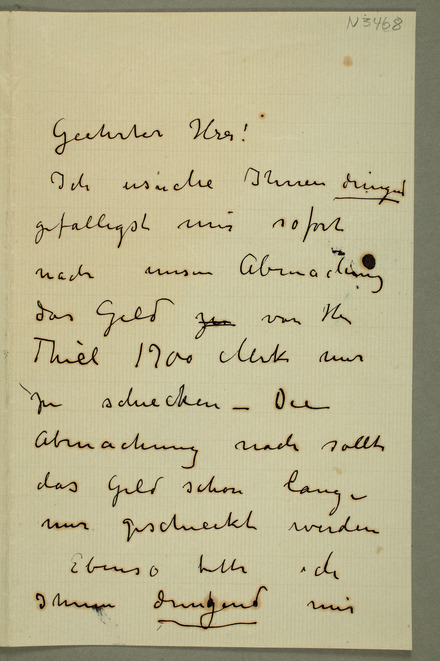 N 3468
Geehrter Herr!
Ich ersuche Ihnen dringend
gefälligst mir sofort
nach unsere Abmachung
das Geld zu von Her
Thiel 1900 Mark mir
zu schicken – Der
Abmachung nach sollte
das Geld schon lange
mir geschickt werden
Ebenso bitte ich
Ihnen dringend mir